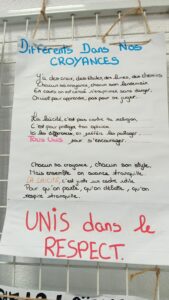 Différents Dans Nos
CROYANCES
Y'a des croix, des étoiles, des lunes, des chemins
Chacun sa croyance, chacun son lendemain
En cours on est carré, s'exprime sans danger.
On est là pour apprendre, pas pour se juger.
La laïcité, c'est pas contre ta religion
C'est pour protéger ton opinion
Ici les différences on préfère les partager
TOUS UNIS pour s'encourager.
Chacun sa croyance, chacun son style,
Mais ensemble on avance tranquille.
LA LAÏCITÉ, c'est juste un cadre utile
Pour qu'on parle, qu'on débatte, qu'on
respire tranquille.
UNIS dans le
RESPECT.